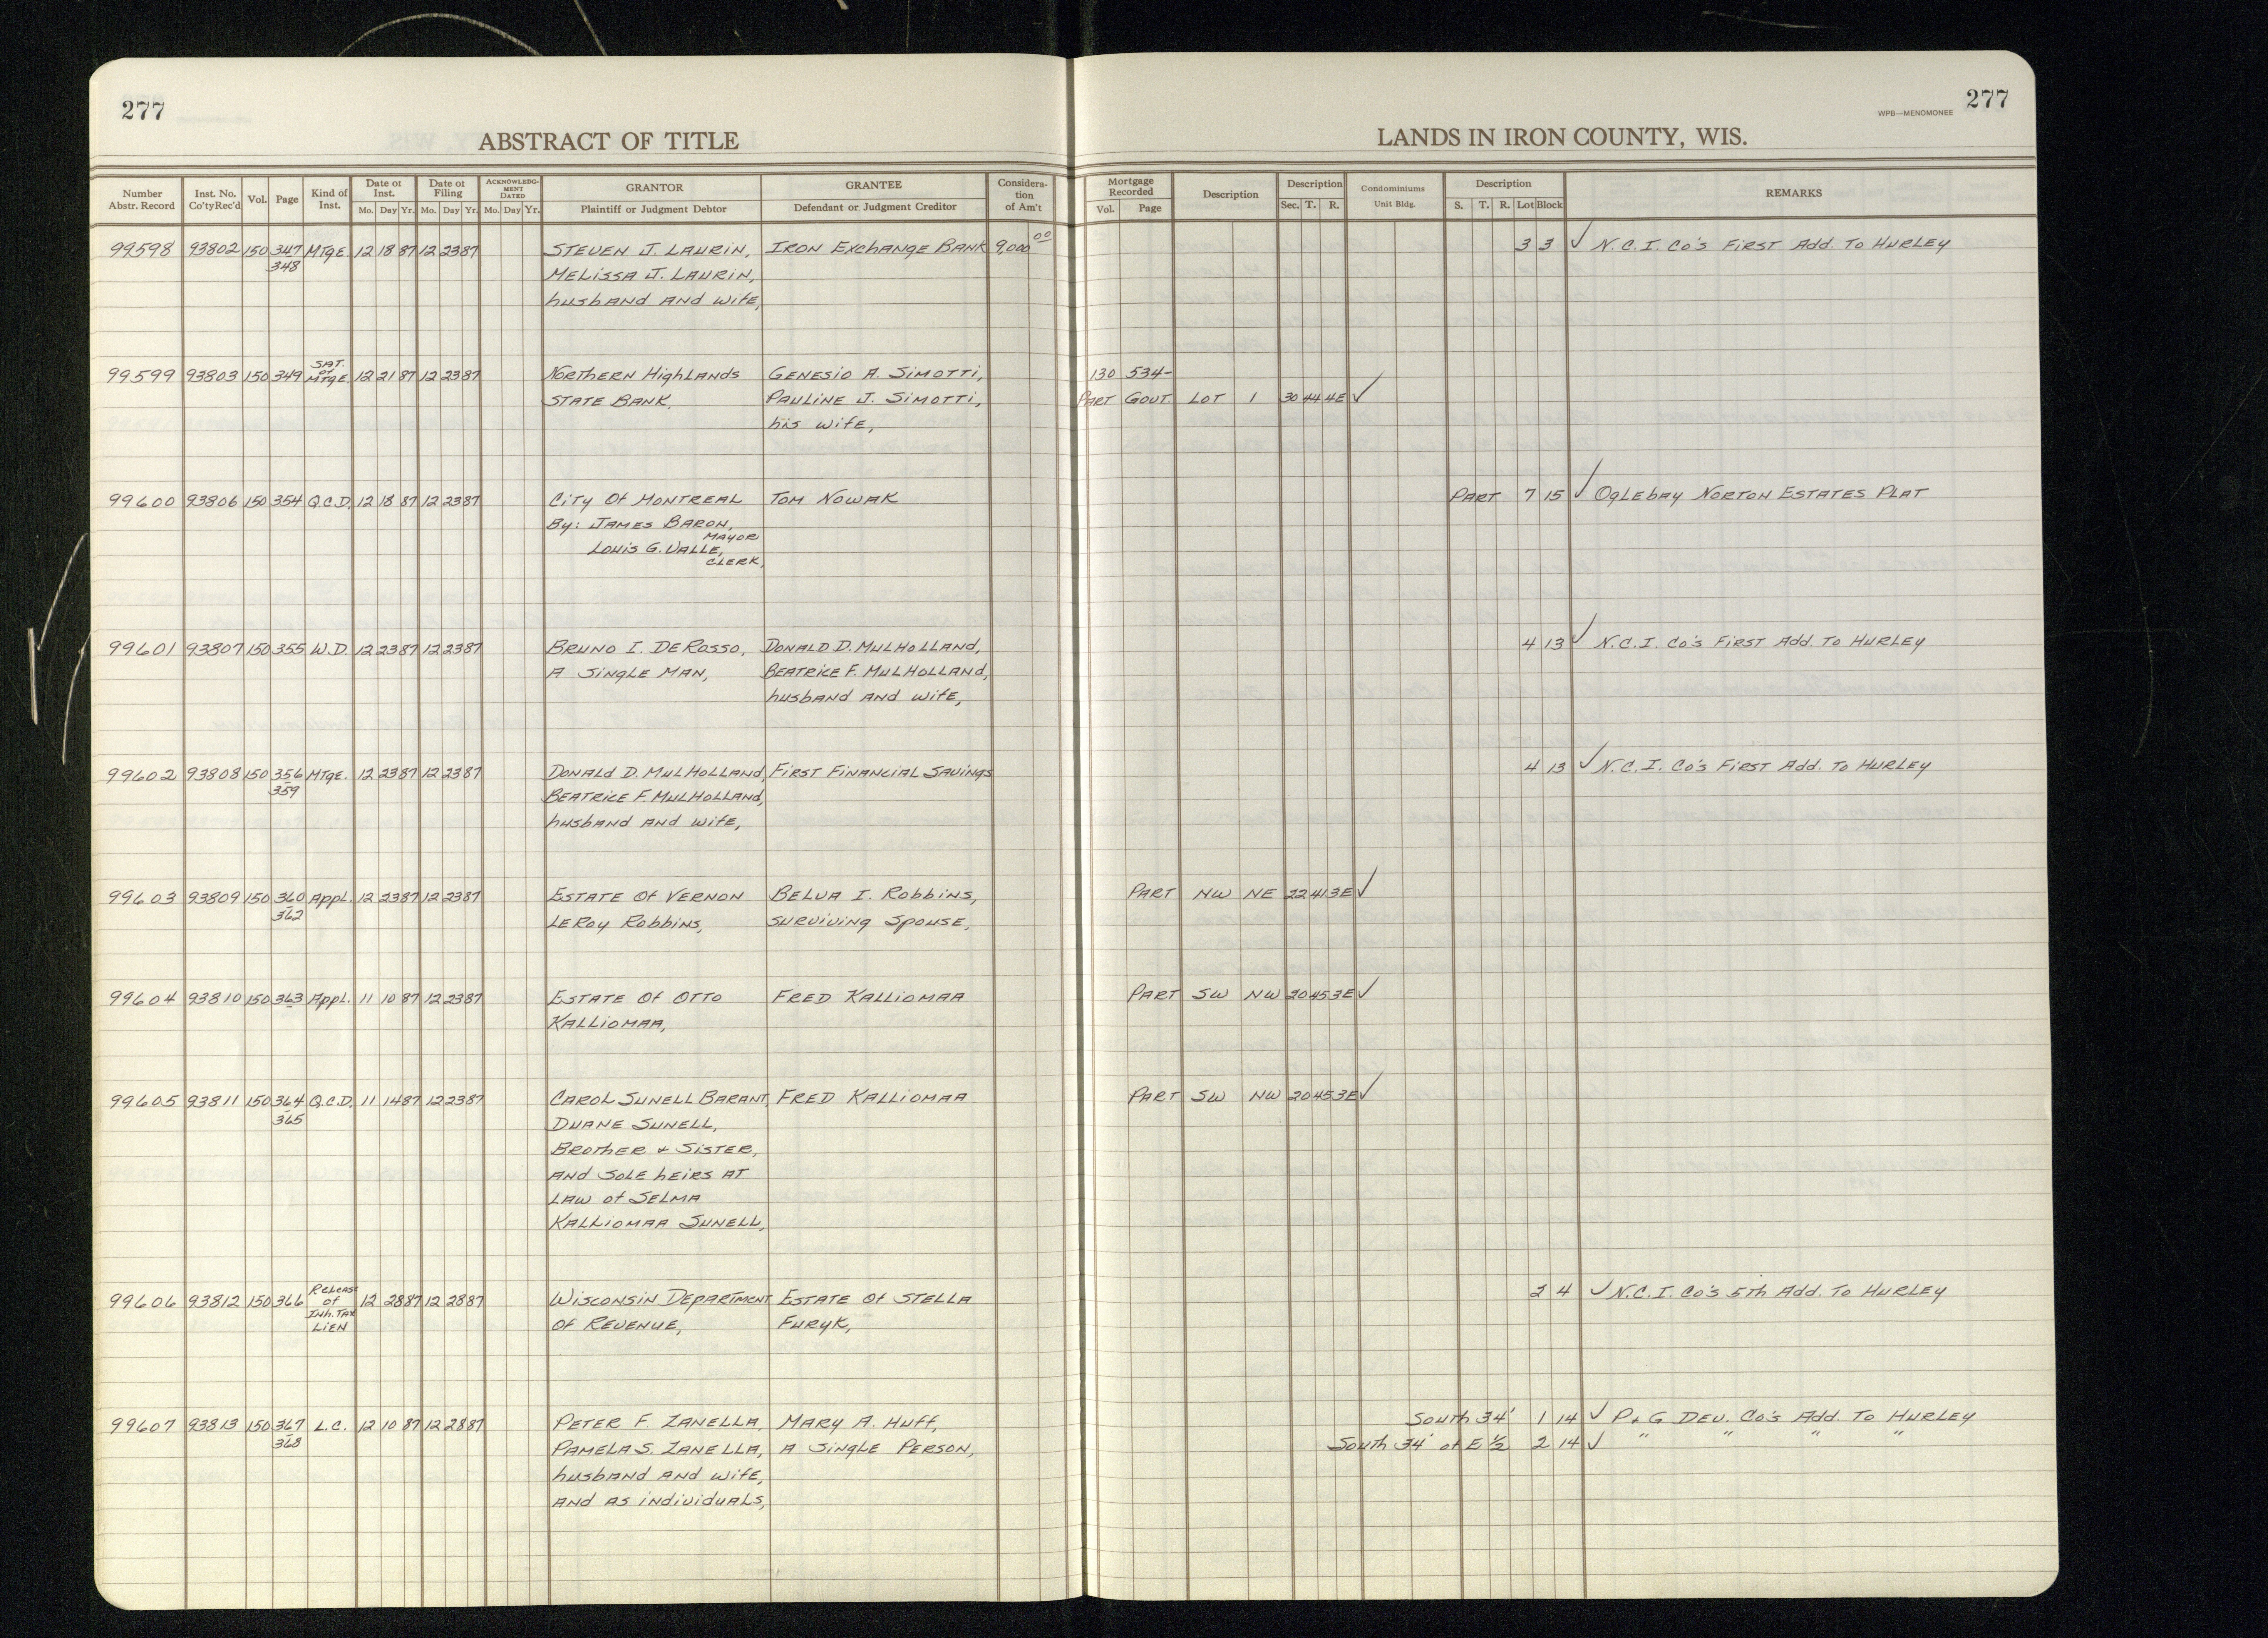 277
277
WPB—MENOMONEE
ABSTRACT OF TITLE
LANDS IN IRON COUNTY, WIS.
Number Abstr. Record | Inst. No. Co'ty Rec'd | Vol. | Page | Kind of Inst. | Date of Inst. Mo. Day Yr. | Date of Filing Mo. Day Yr. | ACKNOWLEDGMENT DATED Mo. Day Yr. | GRANTOR Plaintiff or Judgment Debtor | GRANTEE Defendant or Judgment Creditor | Consideration of Am't | Mortgage Recorded Vol. Page | Description | Description Sec. T. R. | Condominiums Unit Bldg. | Description S. T. R. Lot Block | REMARKS
99598 93802 150 347 MTgE 12 18 87 12 23 87 STEVEN J. LAURIN, IRON ExchANgE BANK 9,000 00 3 3 ✓ N.C.I. Co's FIRST Add. To HURLEY
348 MELISSA J. LAURIN,
husbANd ANd wife,
SAT.
99599 93803 150 349 of MTgE. 12 21 87 12 23 87 NORTHERN HighLANds GENESIO A. SIMOTTI, 130 534-
STATE BANK, PAULINE J. SIMOTTI, PART GOVT. LOT 1 30 44 4E ✓
his wife,
99600 93806 150 354 Q.C.D. 12 18 87 12 23 87 CITY Of MONTREAL TOM NOWAK PART 7 15 ✓ OgLEbAy NORTON ESTATES PLAT
By: JAMES BARON,
MAYOR
LOUIS G. VALLE,
CLERK,
99601 93807 150 355 W.D. 12 23 87 12 23 87 BRUNO I. DE ROSSO, DONALD D. MULHOLLAND, 4 13 ✓ N.C.I. Co's FIRST Add. To HURLEY
A SINgLE MAN, BEATRICE F. MULHOLLAND,
husbANd ANd wife,
99602 93808 150 356 MTgE. 12 23 87 12 23 87 DONALd D. MULHOLLANd, FIRST FINANCIAL SAVINgS 4 13 ✓ N.C.I. Co's FIRST Add. To HURLEY
359 BEATRICE F. MULHOLLANd,
husbANd ANd wife,
99603 93809 150 360 AppL. 12 23 87 12 23 87 ESTATE Of VERNON BELVA I. RobbiNs, PART NW NE 22 41 3E ✓
362 LEROy RobbiNs, SURViViNg SpOUSE,
99604 93810 150 363 AppL. 11 10 87 12 23 87 ESTATE Of OTTO FRED KALLIOMAA PART SW NW 20 45 3E ✓
KALLIOMAA,
99605 93811 150 364 Q.C.D. 11 14 87 12 23 87 CAROL SUNELL BARANT, FRED KALLIOMAA PART SW NW 20 45 3E ✓
365 DUANE SUNELL,
BROTHER & SISTER,
ANd SOLE hEIRS AT
LAW of SELMA
KALLIOMAA SUNELL,
RELEASE
99606 93812 150 366 of 12 28 87 12 28 87 WISCONSIN DEPARTMENT ESTATE Of STELLA 2 4 ✓ N.C.I. Co's 5Th Add. To HURLEY
Inh. TAX Of REVENUE, FURYK,
LIEN
99607 93813 150 367 L.C. 12 10 87 12 28 87 PETER F. ZANELLA, MARY A. HUff, South 34' 1 14 ✓ P & G DEV. Co's Add. To HURLEY
368 PAMELA S. ZANELLA, A SiNgLE PERSON, South 34' of E ½ 2 14 ✓ " " " "
husbANd ANd wife,
ANd AS iNdividuALs,